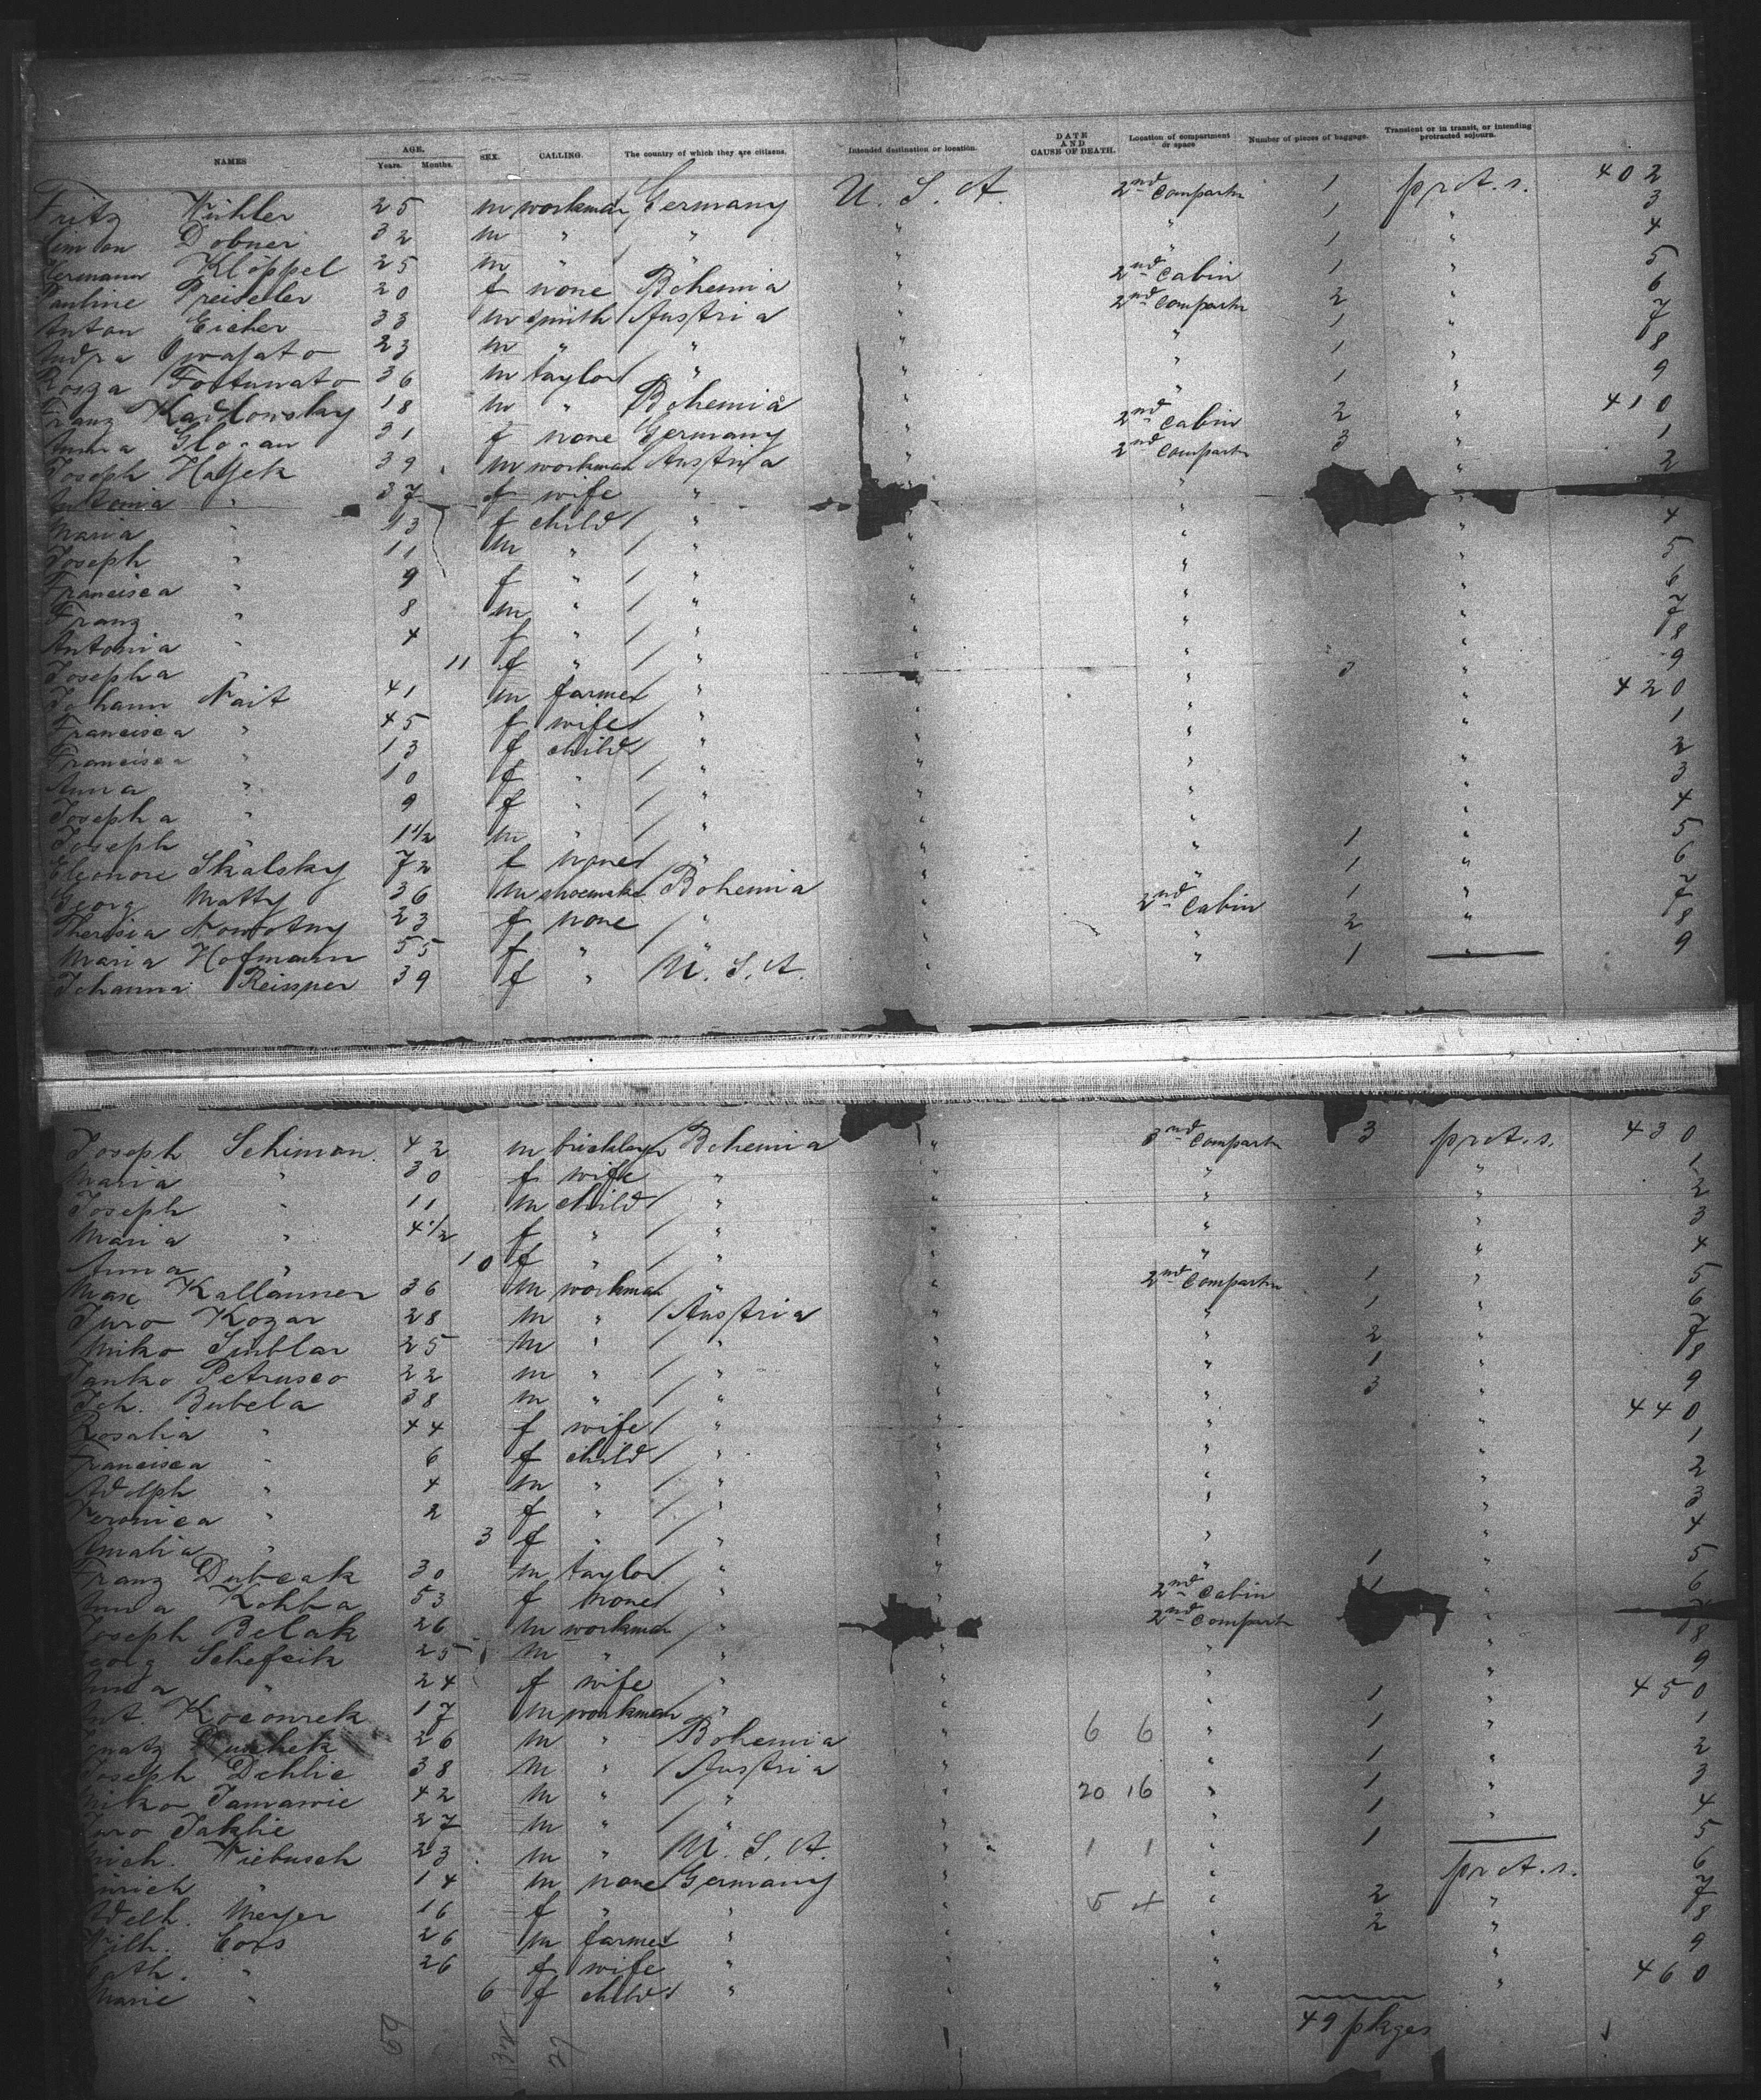 NAMES AGE. Years. Months. SEX. CALLING. The country of which they are citizens. Intended destination or location. DATE AND CAUSE OF DEATH. Location of compartment or space Number of pieces of baggage. Transient or in transit, or intending protracted sojourn.
Fritz Kühler 25 m workman Germany U. S. A. 2nd Compartm 1 prct. s. 402
Dobner 32 m " " " " 1 " 3
Hermann Klöppel 25 m " " " " 1 " 4
Pauline Preiseller 20 f none Bohemia " 2nd Cabin 1 " 5
Anton Eicher 33 m smith Austria " 2nd Compartm 2 " 6
23 m " " " " 1 " 7
Fortunato 36 m taylor " " " 1 " 8
Franz Kadlonsky 18 m " Bohemia " " 1 " 9
Anna Glogau 31 f none Germany " 2nd Cabin 2 " 410
Joseph Hajek 39 m workman Austria " 2nd Compartm 3 " 1
Antonia " 37 f wife " " " " 2
Maria " 13 f child " " " "
Joseph " 11 m " " " " " 4
Francisca " 9 f " " " " " 5
Franz " 8 m " " " " " 6
Antonia " 4 f " " " " " 7
Josepha " 11 f " " " " " 8
Johann Nait 41 m farmer " " " 3 " 9
Francisca " 45 f wife " " " " 420
Francisca " 13 f child " " " " 1
Anna " 10 f " " " " " 2
Josepha " 9 f " " " " " 3
Joseph " 1 1/2 m " " " " " 4
Eleonore Skalsky 72 f none " " " 1 " 5
Georg Matty 36 m shoemaker Bohemia " " 1 " 6
Theresia Nowotny 23 f none " " 2nd Cabin 1 " 7
Maria Hofmann 55 f " " " " 2 " 8
Johanna Reissner 39 f " U. S. A. " " 1 9
Joseph Schiman 42 m bricklayr Bohemia " 3nd Compartm 3 prct. s. 430
Maria " 30 f wife " " " " 1
Joseph " 11 m child " " " " 2
Maria " 4 1/2 f " " " " " 3
Anna " 10 f " " " " " 4
Max Kallanner 36 m workman " " 2nd Compartm 1 " 5
Juro Kozar 28 m " Austria " " 1 " 6
Miko 25 m " " " " 2 " 7
Janko Petrusco 22 m " " " " 1 " 8
Joh. Bubela 38 m " " " " 3 " 9
Rosalia " 44 f wife " " " " 440
Francisca " 6 f child " " " " 1
Adolph " 4 m " " " " " 2
Veronica " 2 f " " " " " 3
Amalia " 3 f " " " " " 4
Franz Dubcak 30 m taylor " " " 1 " 5
Anna Kohba 53 f none " " 2nd Cabin 1 " 6
Joseph Belak 26 m workman " " 2nd Compartm " 7
Georg Schefcik 25 m " " " " " 8
Anna " 24 f wife " " " " 9
Ant. Koconrek 17 m workman " " " 1 " 450
26 m " Bohemia " 6 6 " 1 " 1
Joseph Dehlic 38 m " Austria " " 1 " 2
Miko 42 m " " " 20 16 " 1 " 3
Juro Jaklic 27 m " " " " 1 " 4
Wiebusch 23 m " U. S. A. " 1 1 " 1 5
" 14 m none Germany " " prct. s. 6
Meyer 16 f " " " 5 4 " 2 " 7
Wilh. Cors 26 m farmer " " " 2 " 8
Cath. " 26 f wife " " " " 9
Marie " 6 f child " " " " 460
49 pkges
59 27